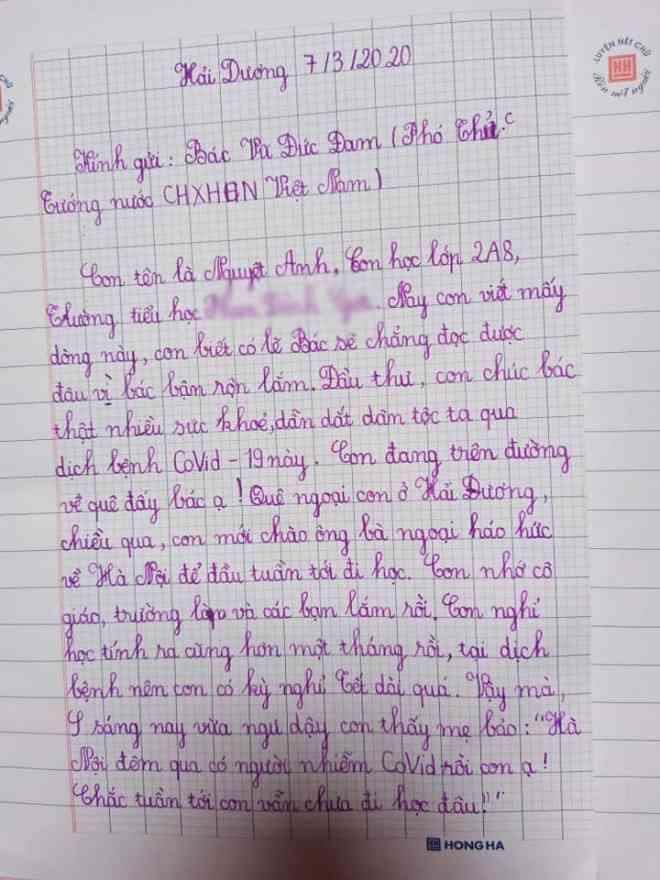 Hải Dương 7/3/2020
Kính gửi: Bác Vũ Đức Đam (Phó Thủ
tướng nước CHXHCN Việt Nam)
Con tên là Nguyệt Anh. Con học lớp 2A8,
trường tiểu học. Nay con viết mấy
dòng này, con biết có lẽ Bác sẽ chẳng đọc được
đâu vì bác bận rộn lắm. Đầu thư, con chúc bác
thật nhiều sức khoẻ, dẫn dắt dâm tộc ta qua
dịch bệnh CoVid - 19 này. Con đang trên đường
về quê đấy bác ạ! Quê ngoại con ở Hải Dương,
chiều qua, con mới chào ông bà ngoại háo hức
về Hà Nội để đầu tuần tới đi học. Con nhớ cô
giáo, trường lớp và các bạn lắm rồi. Con nghỉ
học tính ra cũng hơn một tháng rồi, tại dịch
bệnh nên con có kỳ nghỉ Tết dài quá. Vậy mà,
sáng nay vừa ngủ dậy con thấy mẹ bảo: "Hà
Nội đêm qua có người nhiễm CoVid rồi con ạ!
Chắc tuần tới con vẫn chưa đi học đâu!"
HONG HA
LUYỆN NÉT CHỮ
Rèn nết người
HH